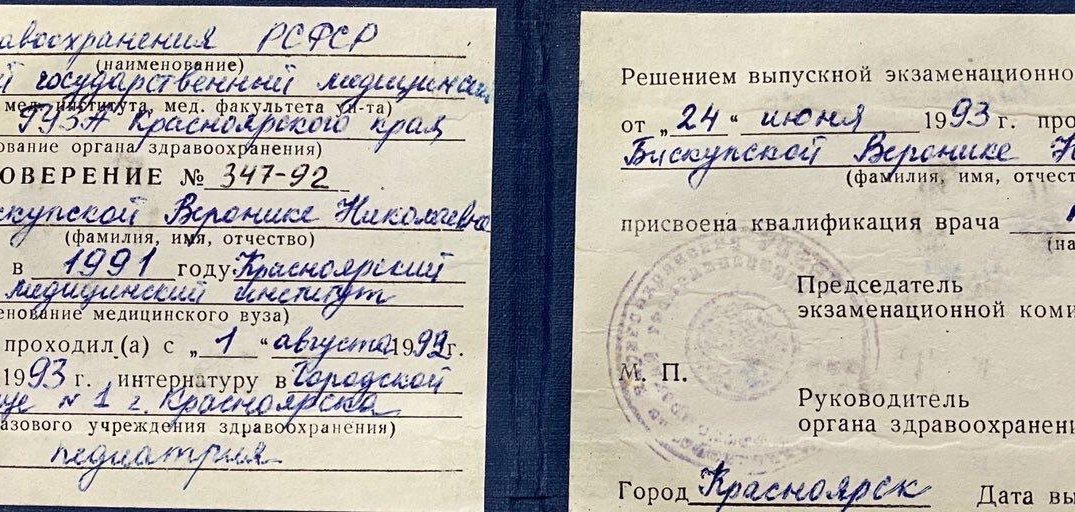 авоохранения РСФСР
(наименование)
й государственный медицински
мед. института, мед. факультета ун-та)
ГУЗА Красноярского края
ование органа здравоохранения)
ОВЕРЕНИЕ № 347-92
скупской Веронике Николаевне
(фамилия, имя, отчество)
в 1991 году Красноярский
медицинский институт
енование медицинского вуза)
проходил (а) с „ 1 “ августа 1992 г.
1993 г. интернатуру в Городской
це № 1 г. Красноярска
азового учреждения здравоохранения)
педиатрия
Решением выпускной экзаменационно
от „ 24 “ июня 1993 г. про
Бискупской Веронике Н
(фамилия, имя, отчест
присвоена квалификация врача
(на
Председатель
экзаменационной коми
М. П.
Руководитель
органа здравоохранени
Город Красноярск Дата вы